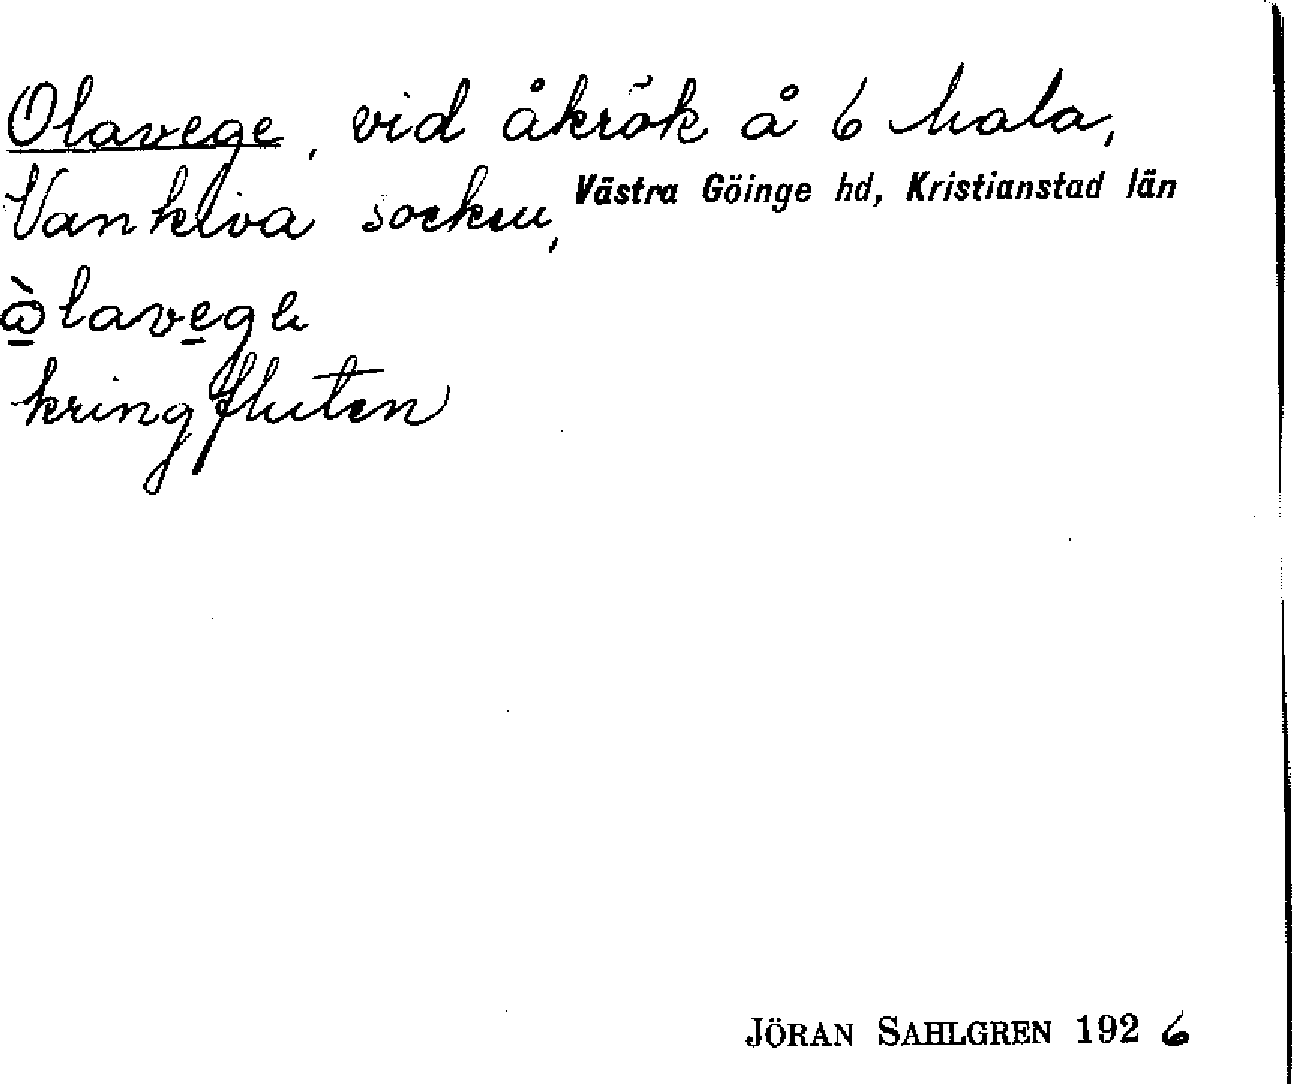 Olavege, vid åkrök å 6 hala,
Vankiva socken, Västra Göinge hd, Kristianstad län
kringfluten
JÖRAN SAHLGREN 1926